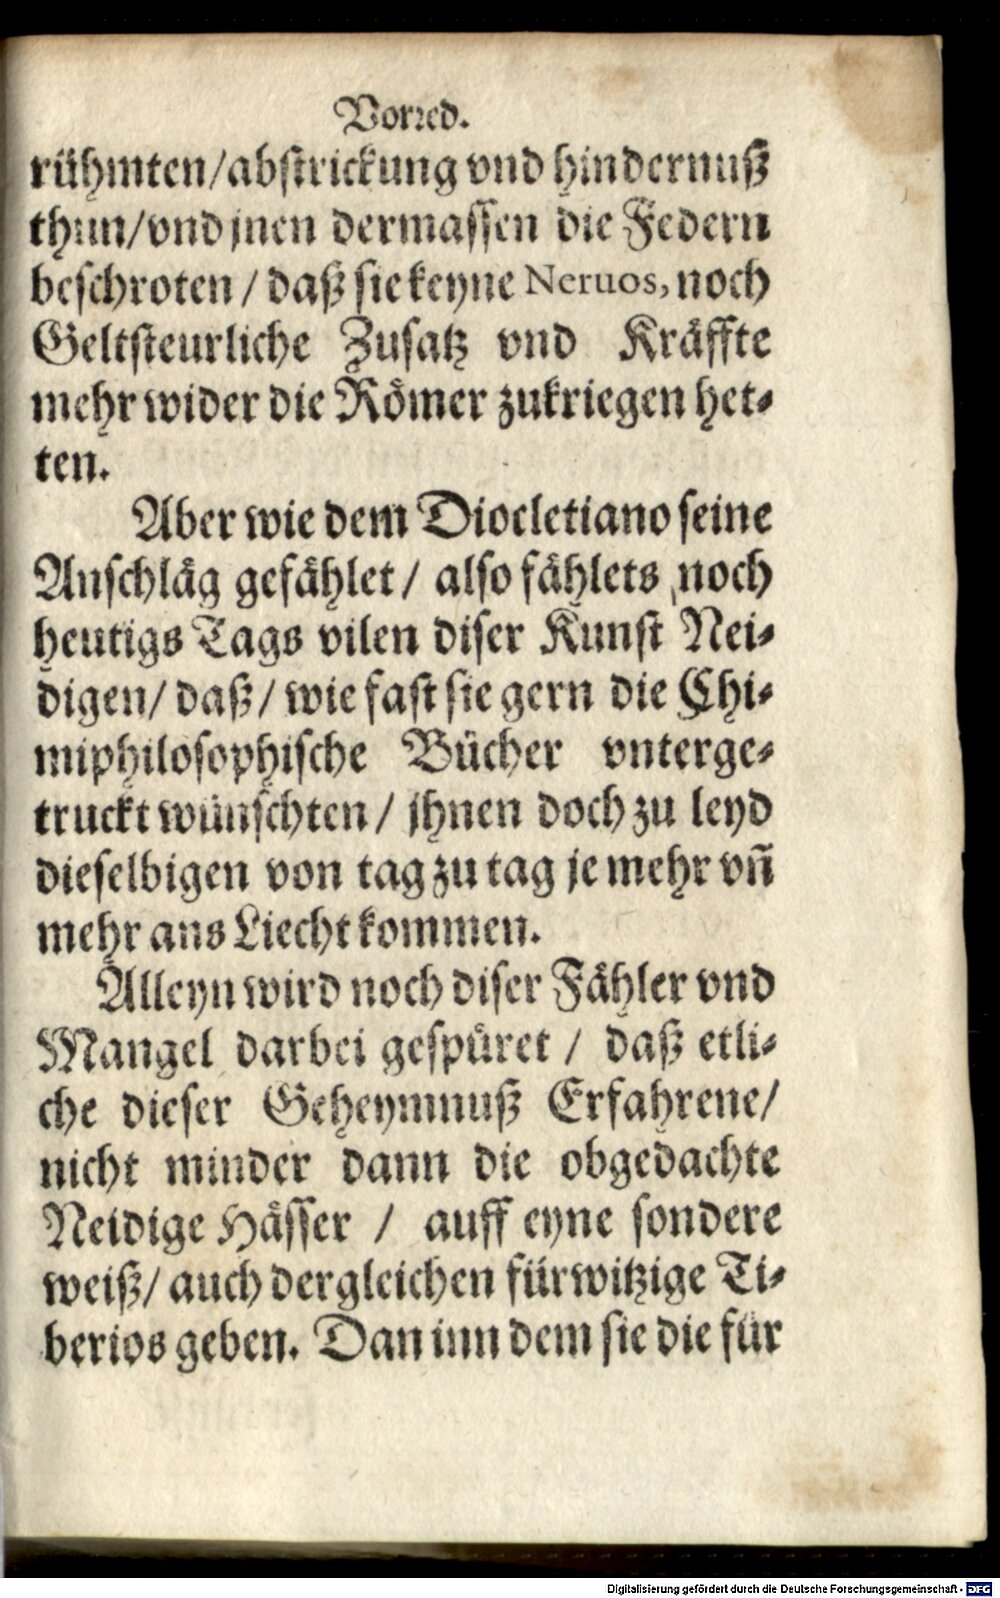 Vorred.
rühmten/abstrickung vnd hindernuß
thun/vnd jnen dermassen die Federn
beschroten / daß sie keyne Neruos, noch
Geltsteurliche Zusatz vnd Kräffte
mehr wider die Römer zukriegen het-
ten.
Aber wie dem Diocletiano seine
Anschläg gefählet / also fählets noch
heutigs Tags vilen diser Kunst Nei-
digen/ daß / wie fast sie gern die Chi-
miphilosophische Bücher vnterge-
truckt wünschten / jhnen doch zu leyd
dieselbigen von tag zu tag je mehr vñ
mehr ans Liecht kommen.
Alleyn wird noch diser Fähler vnd
Mangel darbei gespüret / daß etli-
che dieser Geheymnuß Erfahrene/
nicht minder dann die obgedachte
Neidige Hässer / auff eyne sondere
weiß/ auch dergleichen fürwitzige Ti-
berios geben. Dan inn dem sie die für
Digitalisierung gefördert durch die Deutsche Forschungsgemeinschaft - DFG